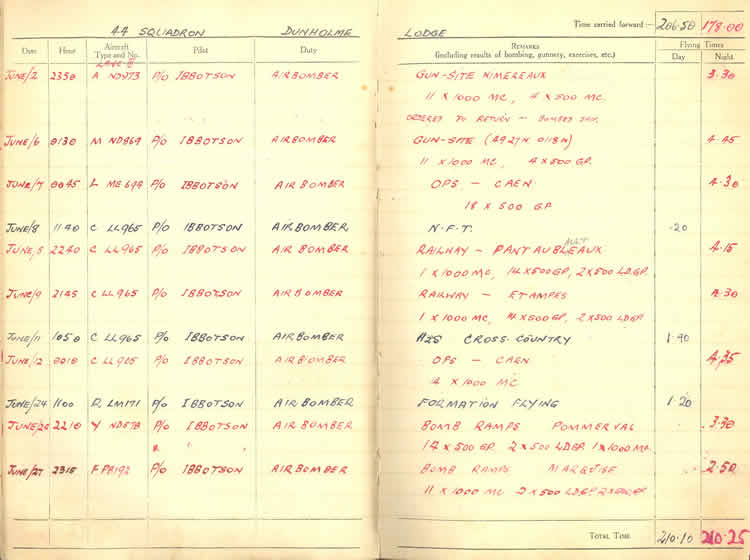 44 SQUADRON DUNHOLME LODGE Time carried forward:— 206.50 178.00
Date Hour Aircraft Type and No. Pilot Duty REMARKS (including results of bombing, gunnery, exercises, etc.) Flying Times Day Night
LANC
JUNE/2 2350 A ND973 P/O IBBOTSON AIRBOMBER GUN-SITE NIMEREAUX 3.30
11 x 1000 MC, 4 x 500 MC.
ORDERED TO RETURN — BOMBED
JUNE/6 0130 M ND869 P/O IBBOTSON AIRBOMBER GUN-SITE (4927N 0118W) 4.45
11 x 1000 MC, 4 x 500 GP.
JUNE/7 0045 L ME 694 P/O IBBOTSON AIR BOMBER OPS — CAEN 4.30
18 x 500 GP
JUNE/8 1140 C LL965 P/O IBBOTSON AIR BOMBER N.F.T. .20
JUNE/8 2240 C LL965 P/O IBBOTSON AIR BOMBER RAILWAY — PANTAUBLEAUX 4.15
AULT
1 x 1000 MC, 14 x 500 GP, 2 x 500 LD.GP.
JUNE/9 2145 C LL965 P/O IBBOTSON AIR BOMBER RAILWAY — ETAMPES 4.30
1 x 1000 MC, x 500 GP, 2 x 500 LDGP
JUNE/11 1050 C LL965 P/O IBBOTSON AIRBOMBER H2S CROSS COUNTRY 1.40
JUNE/12 0010 C LL965 P/O IBBOTSON AIR BOMBER OPS — CAEN 4.35
x 1000 MC
JUNE/24 1100 LM171 P/O IBBOTSON AIR BOMBER FORMATION FLYING 1.20
2210 Y ND578 P/O IBBOTSON AIR BOMBER BOMB RAMPS POMMERVAL 3.30
14 x 500 GP 2 x 500 LDGP 1 x 1000 MC
JUNE/27 2315 F PB192 P/O IBBOTSON AIR BOMBER BOMB RAMPS MARQUISE 2.50
11 x 1000 MC 2 x 500 LD.GP
TOTAL TIME 210.10 210.25